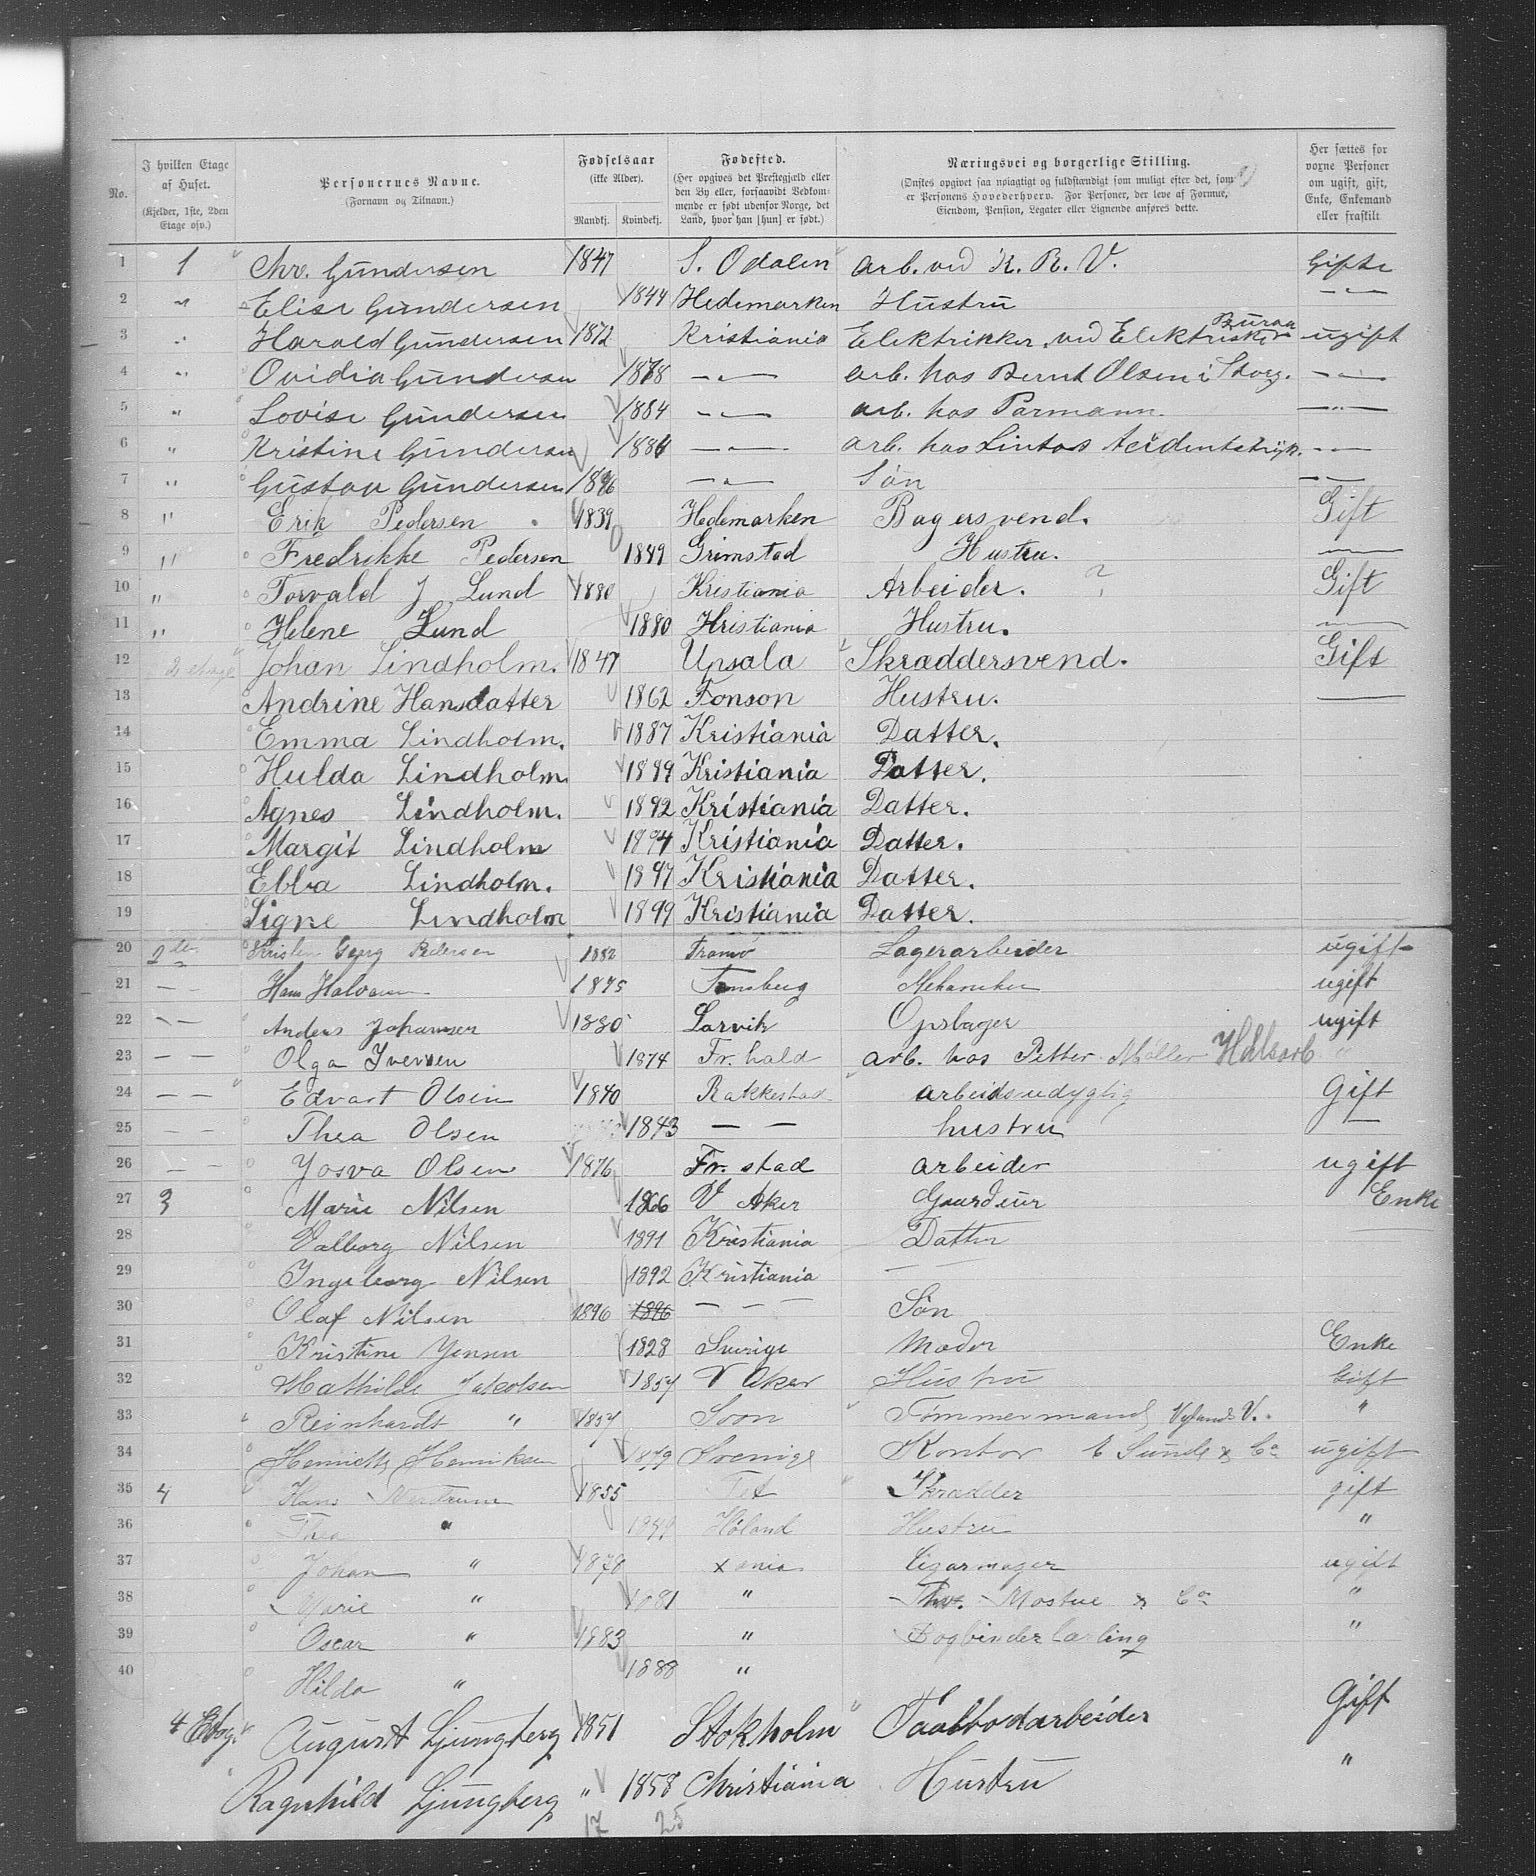 No.
I hvilken Etage af Huset.
(Kjelder, 1ste, 2den Etage osv.)
Personernes Navne.
(Fornavn og Tilnavn.)
Fødselsaar
(ikke Alder).
Mandkj. Kvindekj.
Fødested.
(Her opgives det Prestegjæld eller den By eller, forsaavidt Vedkommende er født udenfor Norge, det Land, hvor han [hun] er født.)
Næringsvei og borgerlige Stilling.
(Ønskes opgivet saa nøiagtigt og fuldstændigt som muligt efter det, som er Personens Hovederhverv. For Personer, der leve af Formue, Eiendom, Pension, Legater eller Lignende anføres dette.
Her sættes for voxne Personer om ugift, gift, Enke, Enkemand eller fraskilt
1 1 Chr. Gundersen 1847 S. Odalen arb. ved K. R. V. Gifte
2 " Elise Gundersen 1844 Hedemarken Hustru —"—
3 " Harald Gundersen 1872 Kristiania Elektrikker ved Elektriske Buraa ugift
4 " Ovidia Gundersen 1878 —"— arb. hos Bernt Olsen i Storg. —"—
5 " Lovise Gundersen 1884 —"— arb. hos Parmann. —"—
6 " Kristine Gundersen 1886 —"— arb. hos Lintos Accidentstryk. —"—
7 " Gustav Gundersen 1896 —"— Søn —"—
8 " Erik Pedersen 1839 Hedemarken Bagersvend. Gift
9 " Fredrikke Pedersen 1849 Grimstad Hustru. —
10 " Torvald J Lund 1880 Kristiania Arbeider. ? Gift
11 " Helene Lund 1880 Kristiania Hustru. —
12 2 etage Johan Lindholm. 1847 Upsala Skraddersvend. Gift
13 Andrine Hansdatter 1862 Fonson Hustru. —
14 Emma Lindholm. 1887 Kristiania Datter.
15 Hulda Lindholm. 1889 Kristiania Datter.
16 Agnes Lindholm. 1892 Kristiania Datter.
17 Margit Lindholm 1894 Kristiania Datter.
18 Ebba Lindholm. 1897 Kristiania Datter.
19 Signe Lindholm 1899 Kristiania Datter.
20 2te Kristen Georg Pedersen 1882 Tromsø Lagerarbeider ugift
21 — — Hans Halvorsen 1875 Tønsberg Mekaniker ugift
22 — — Anders Johansen 1880 Larvik Opsbager ugift
23 — — Olga Iversen 1874 Fr. hald arb. hos Petter Møller "
24 — — Edvart Olsen 1840 Rakkestad arbeidsudygtig Gift
25 — — Thea Olsen 1843 — — hustru —
26 — — Josva Olsen 1876 Fr. stad arbeider ugift
27 3 Marie Nilsen 1866 V Aker Gaardeier Enke
28 Valborg Nilsen 1891 Kristiania Datter
29 Ingeborg Nilsen 1892 Kristiania —
30 Olaf Nilsen 1896 1896 — — — Søn
31 Kristine Jensen 1828 Sverige Moder Enke
32 Mathilde Jakobsen 1857 V Aker Hustru Gift
33 Reinhardt " 1857 Soon Tømmermand, Nylands V. "
34 Henriette Henriksen 1879 Sverige Kontor E Sunde & Co ugift
35 4 Hans 1855 Skrædder gift
36 Thea " Høland Hustru "
37 Johan " 1878 Xania Cigarmager ugift
38 Marie " 1881 " Thv. Mostue & Co "
39 Oscar " 1883 " Bogbinderlærling "
40 Hilda " 1888 "
4 Etage August Ljungberg 1851 Stokholm Gift
Ragnhild Ljungberg " 1858 Christiania Hustru "
17 25